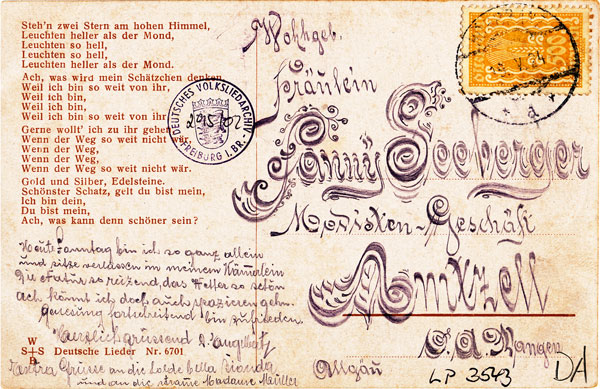 Steh'n zwei Stern am hohen Himmel,
Leuchten heller als der Mond,
Leuchten so hell,
Leuchten so hell,
Leuchten heller als der Mond.
Ach, was wird mein Schätzchen denken,
Weil ich bin so weit von ihr,
Weil ich bin,
Weil ich bin,
Weil ich bin so weit von ihr
Gerne wollt' ich zu ihr gehen
Wenn der Weg so weit nicht wär.
Wenn der Weg,
Wenn der Weg,
Wenn der Weg so weit nicht wär.
Gold und Silber, Edelsteine.
Schönster Schatz, gelt du bist mein,
Ich bin dein,
Du bist mein,
Ach, was kann denn schöner sein?
Heute Sonntag bin ich so ganz allein
und sitze verlassen in meinem Kämerlein
Die Natur so reizend, das Wetter so schön
ach könnt ich doch auch spazieren gehn.
Genesung fortschreitend bin zufrieden.
Herzlich grüssend
W
S+S
B
Deutsche Lieder Nr. 6701
Grüsse an die
und an die Madame
DEUTSCHES VOLKSLIEDARCHIV
FREIBURG I. BR.
Wohlgeb.
Fräulein
Fanny Seeberger
Modisten-Geschäft
Amtzell
O.A. Wangen
Allgäu
LP 3543
DA
500
V. 24
a